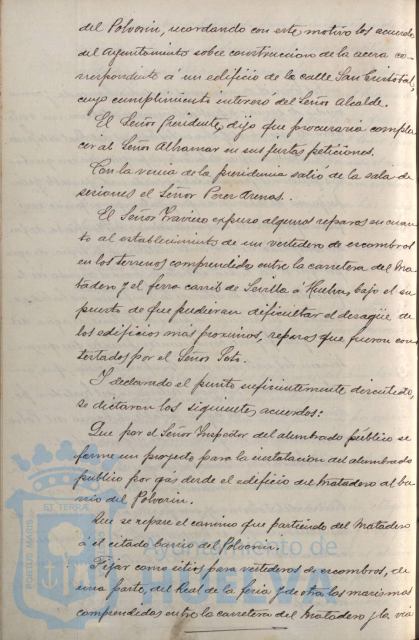 del Polvorin, recordando con este motivo los acuerdos
del Ayuntamiento sobre construccion de la acera co-
rrespondiente á un edificio de la calle San Cristobal,
cuyo cumplimiento interesó del Señor Alcalde.
El Señor Presidente, dijo que procuraria compla-
cer al Señor Alhamar en sus justas peticiones.
Con la venia de la presidencia salió de la sala de
sesiones el Señor Perez Arenas.
El Señor Travieso expuso algunos reparos en cuan-
to al establecimiento de un vertedero de escombros
en los terrenos comprendidos entre la carretera del Ma-
tadero y el ferro carril de Sevilla á Huelva, bajo el su-
puesto de que pudieran dificultar el desagüe de
los edificios más proximos, reparos que fueron con-
testados por el Señor Soto.
Y declarado el punto suficientemente discutido,
se dictaron los siguientes acuerdos:
Que por el Señor Inspector del alumbrado público se
forme un proyecto para la instalacion del alumbrado
publico por gas desde el edificio de Matadero al ba-
rrio del Polvorin.
Que se repase el camino que partiendo del Matadero
á el citado barrio del Polvorin.
Fijar como sitios para vertederos de escombros, de
una parte, del Real de la feria y de otra los marismas
comprendidos entre la carretera del Matadero y la via
PORTUS MARIS ET TERRAE
Ayuntamiento de
HUELVA